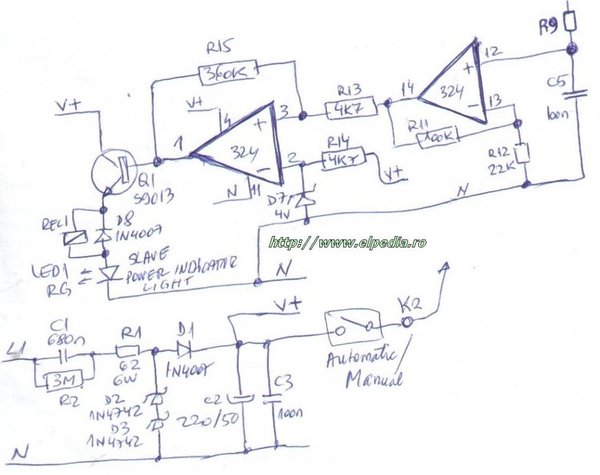 R9
R15
360K
V+
V+
4
3
R13
4K7
14
324
+
-
12
13
C5
100n
1
324
+
-
2
11
N
R11
100K
R12
22K
R14
4K7
V+
D7
4V
N
Q1
S9013
REL1
D8
1N4007
http://www.elpedia.ro
LED1
RG
SLAVE
POWER INDICATOR
LIGHT
N
V+
L1
C1
680n
3M
R2
R1
62
6W
D1
1N4007
D2
1N4742
D3
1N4742
C2
220/50
C3
100n
K2
Automatic
Manual
N